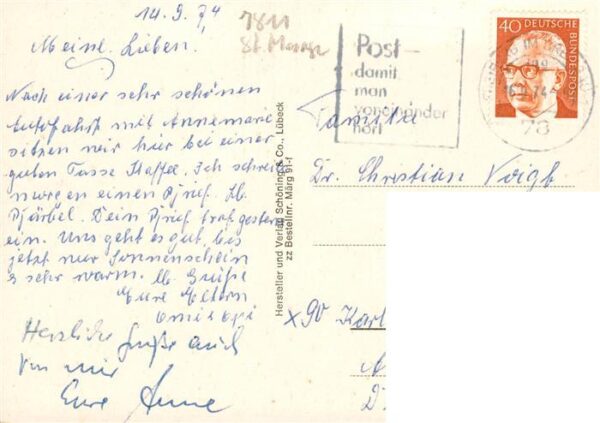 14.9.74
7811
St. Märgen
Meine Lieben!
Nach einer sehr schönen
Autofahrt mit Annemarie
sitzen wir hier bei einer
guten Tasse Kaffee. Ich schreibe
morgen einen Brief. Lb.
Bärbel. Dein Brief traf gestern
ein. Uns geht es gut, bis
jetzt nur Sonnenschein
u sehr warm. Lb. Grüße
Eure Eltern
Omi
Herzliche Grüße auch
von mir
Eure Anne
Hersteller und Verlag Schöning & Co., Lübeck
zz Bestellnr. Märg 91-f
Post-
damit
man
voneinander
hört
40 DEUTSCHE
BUNDESPOST
78
Familie
Dr. Christian Voigt
x90 Karl
A
D.